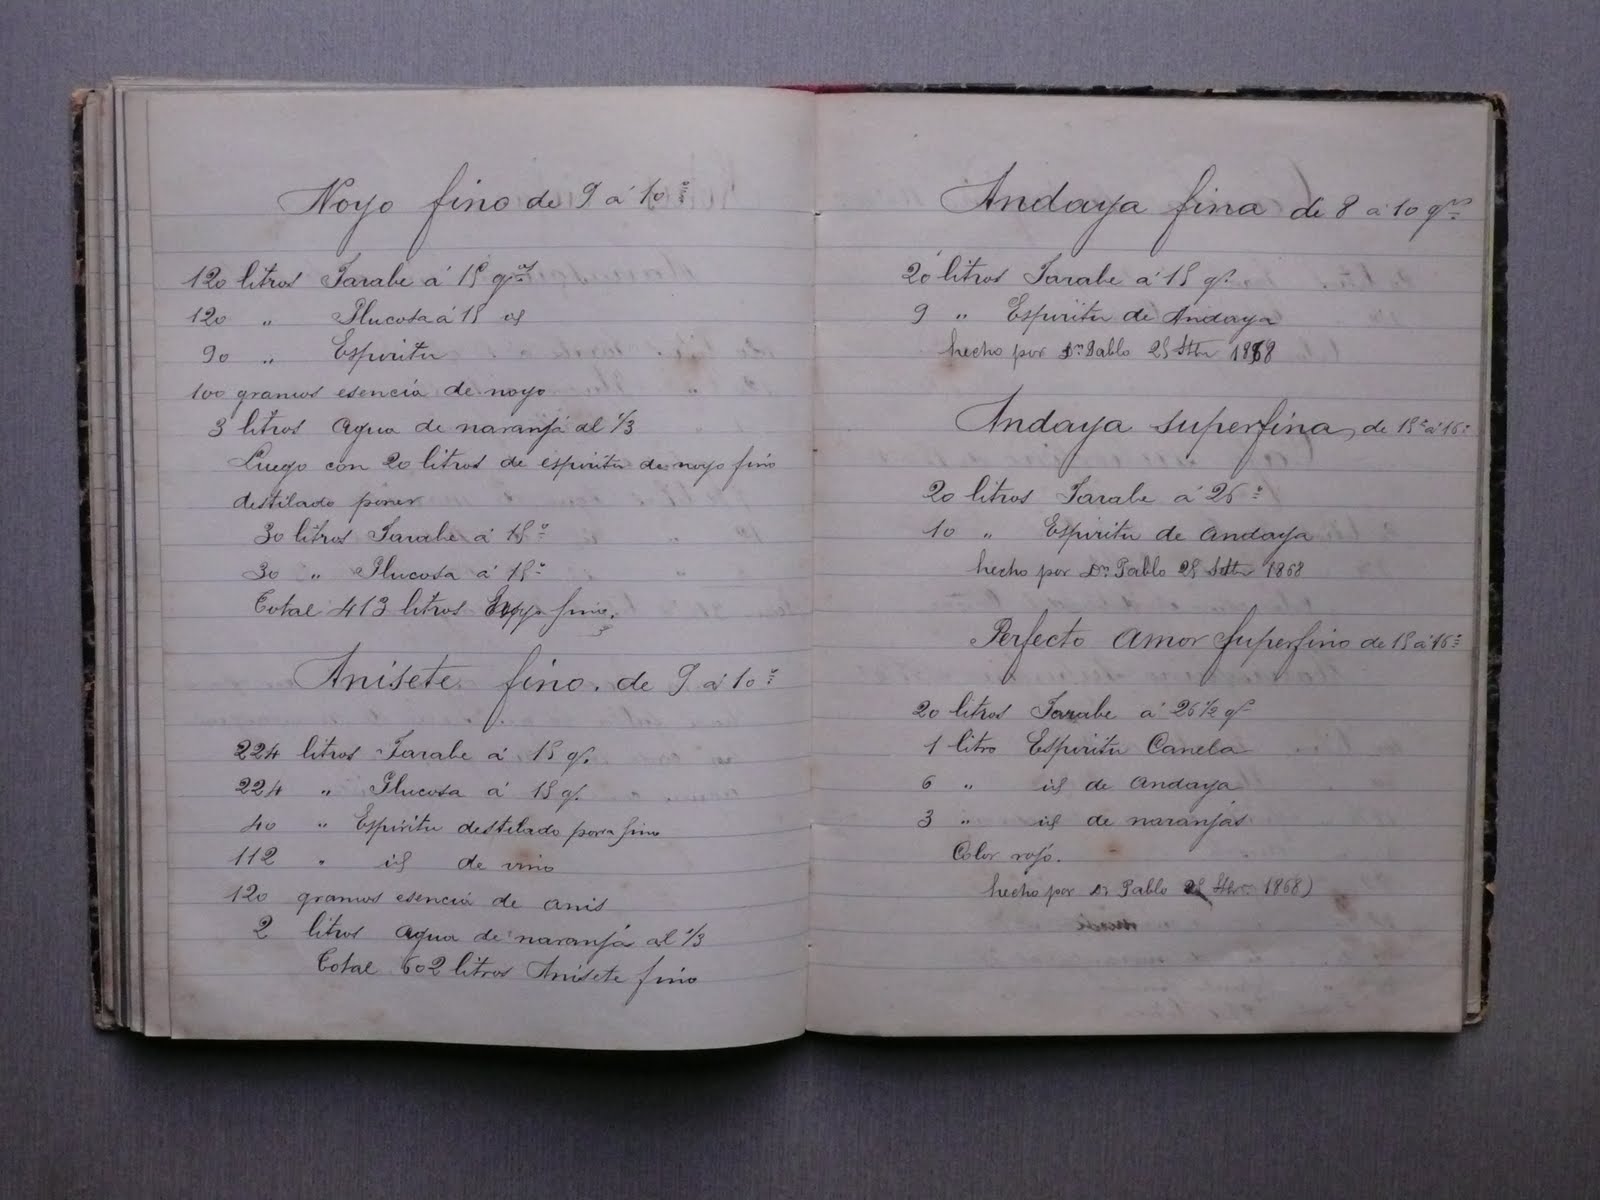 Noyo fino de 9 á 10º
120 litros Jarabe á 15 gos
120 " Glucosa á 15 id
90 " Espiritu
100 gramos esencia de noyo
3 litros agua de naranja al 1/3
Luego con 20 litros de espiritu de noyo fino
destilado poner
30 litros Jarabe á 15º
30 " Glucosa á 15º
Total 413 litros Noyo fino.
Anisete fino. de 9 á 10º
224 litros Jarabe á 15 g.
224 " Glucosa á 15 g.
40 " Espiritu destilado para fino
112 " id de vino
120 gramos esencia de anis
2 litros agua de naranja al 1/3
Total 602 litros Anisete fino
Andaya fina de 8 á 10 gos
20 litros Jarabe á 15 g.
9 " Espiritu de Andaya
hecho por Dn Pablo 25 Stbre 1868
Andaya superfina, de 15º á 16º
20 litros Jarabe á 26º
10 " Espiritu de Andaya
hecho por Dn Pablo 25 Stbre 1868
Perfecto amor superfino de 15 á 16º
20 litros Jarabe á 26 1/2 g
1 litro Espiritu Canela
6 " id de Andaya
3 " id de naranjas
Color rojo.
hecho por Dn Pablo 25 Stbre 1868)